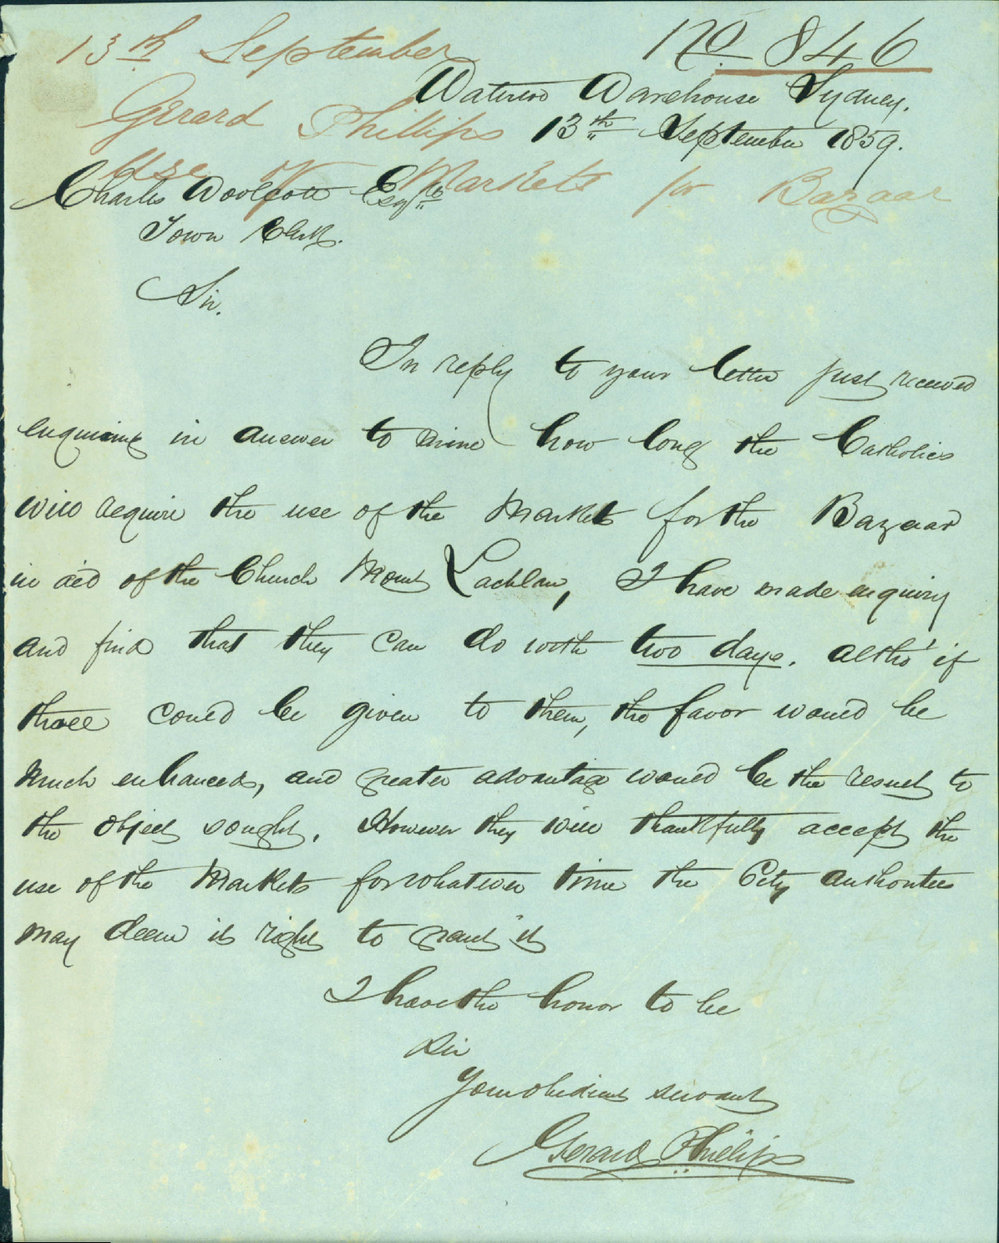 No 846
13th September
Gerard Phillips
Use of Markets for Bazaar
Waterloo Warehouse Sydney.
13th September 1859.
Charles Woolcott Esqre
Town Clerk.
Sir.
In reply to your letter just received
enquiring in answer to mine how long the Catholics
will require the use of the Markets for the Bazaar
in aid of the Church Mount Lachlan, I have made enquiry
and find that they can do with two days. altho' if
three could be given to them, the favor would be
much enhanced, and greater advantage would be the result to
the object sought. However they will thankfully accept the
use of the Markets for whatever time the City authorities
may deem it right to grant it
I have the honor to be
Sir
Your obedient servant
Gerard Phillips